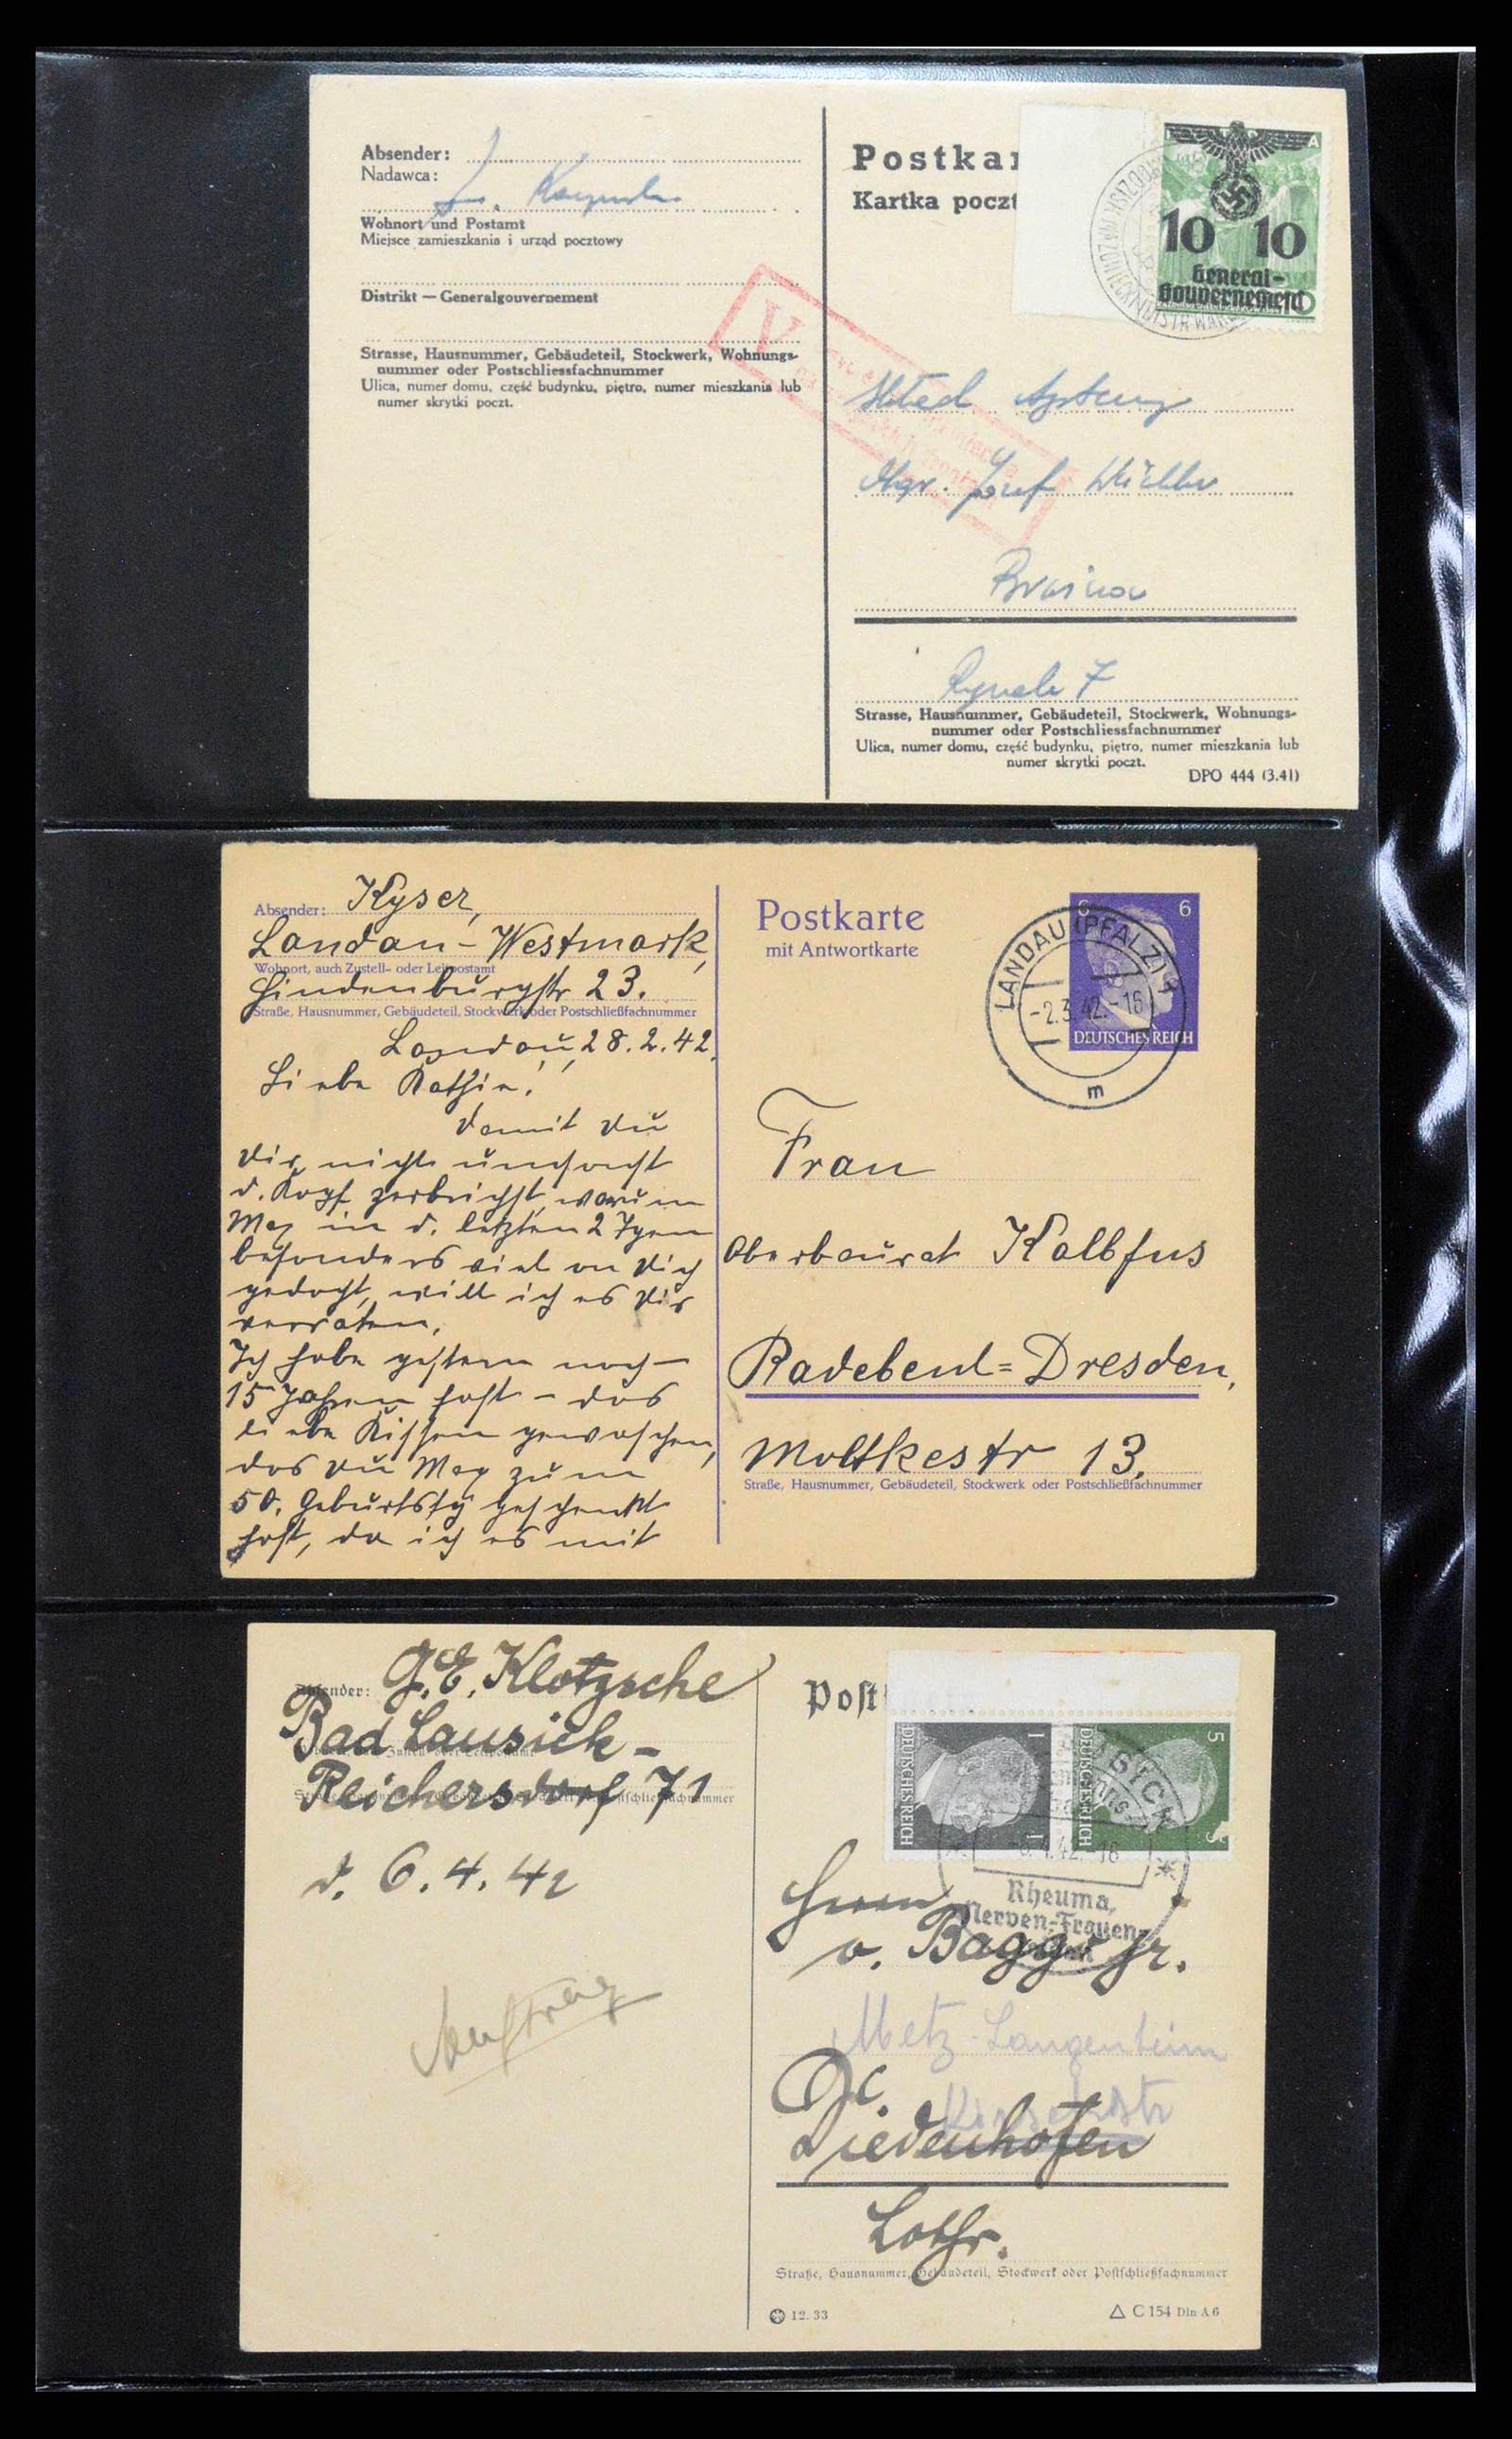 Absender:
Nadawca:
Wohnort und Postamt
Miejsce zamieszkania i urząd pocztowy
Distrikt — Generalgouvernement
Strasse, Hausnummer, Gebäudeteil, Stockwerk, Wohnungs-
nummer oder Postschliessfachnummer
Ulica, numer domu, część budynku, piętro, numer mieszkania lub
numer skrytki poczt.
Postka
Kartka poczt
10 10
General-
Gouvernement
V
Skład Apteczny
Mgr. Józef
7
Strasse, Hausnummer, Gebäudeteil, Stockwerk, Wohnungs-
nummer oder Postschliessfachnummer
Ulica, numer domu, część budynku, piętro, numer mieszkania lub
numer skrytki poczt.
DPO 444 (3.41)
Absender: Kyser,
Landau-Westmark,
Wohnort, auch Zustell- oder Leitpostamt
Hindenburgstr 23.
Straße, Hausnummer, Gebäudeteil, Stockwerk oder Postschließfachnummer
Landau, 28.2.42.
Liebe Käthie!
Damit Du
Dir nicht umsonst
d. Kopf zerbrichst, warum
Max in d. letzten 2 Tgen
besonders viel an Dich
gedacht, will ich es Dir
verraten.
Ich habe gestern nach
15 Jahren fast – das
liebe Kissen gewaschen,
das Du Max zum
50. Geburtstg geschenkt
hast, da ich es mit
Postkarte
mit Antwortkarte
6 6
DEUTSCHES REICH
LANDAU (PFALZ) 1
-2.3.42.-16
m
Frau
Oberbaurat Kalbfus
Radebeul=Dresden,
Moltkestr 13.
Straße, Hausnummer, Gebäudeteil, Stockwerk oder Postschließfachnummer
Absender: G.E. Klotzsche
Bad Lausick-
Reichersdorf 71
d. 6.4.42
Post
1 1
DEUTSCHES REICH
5 5
DEUTSCHES REICH
-6.4.42.-16
Rheuma,
Nerven-Frauen-
Herrn
v. Baggo jr.
Metz-Langenheim
Diedenhofen
Lothr.
Straße, Hausnummer, Gebäudeteil, Stockwerk oder Postschließfachnummer
12. 33
C 154 Din A 6